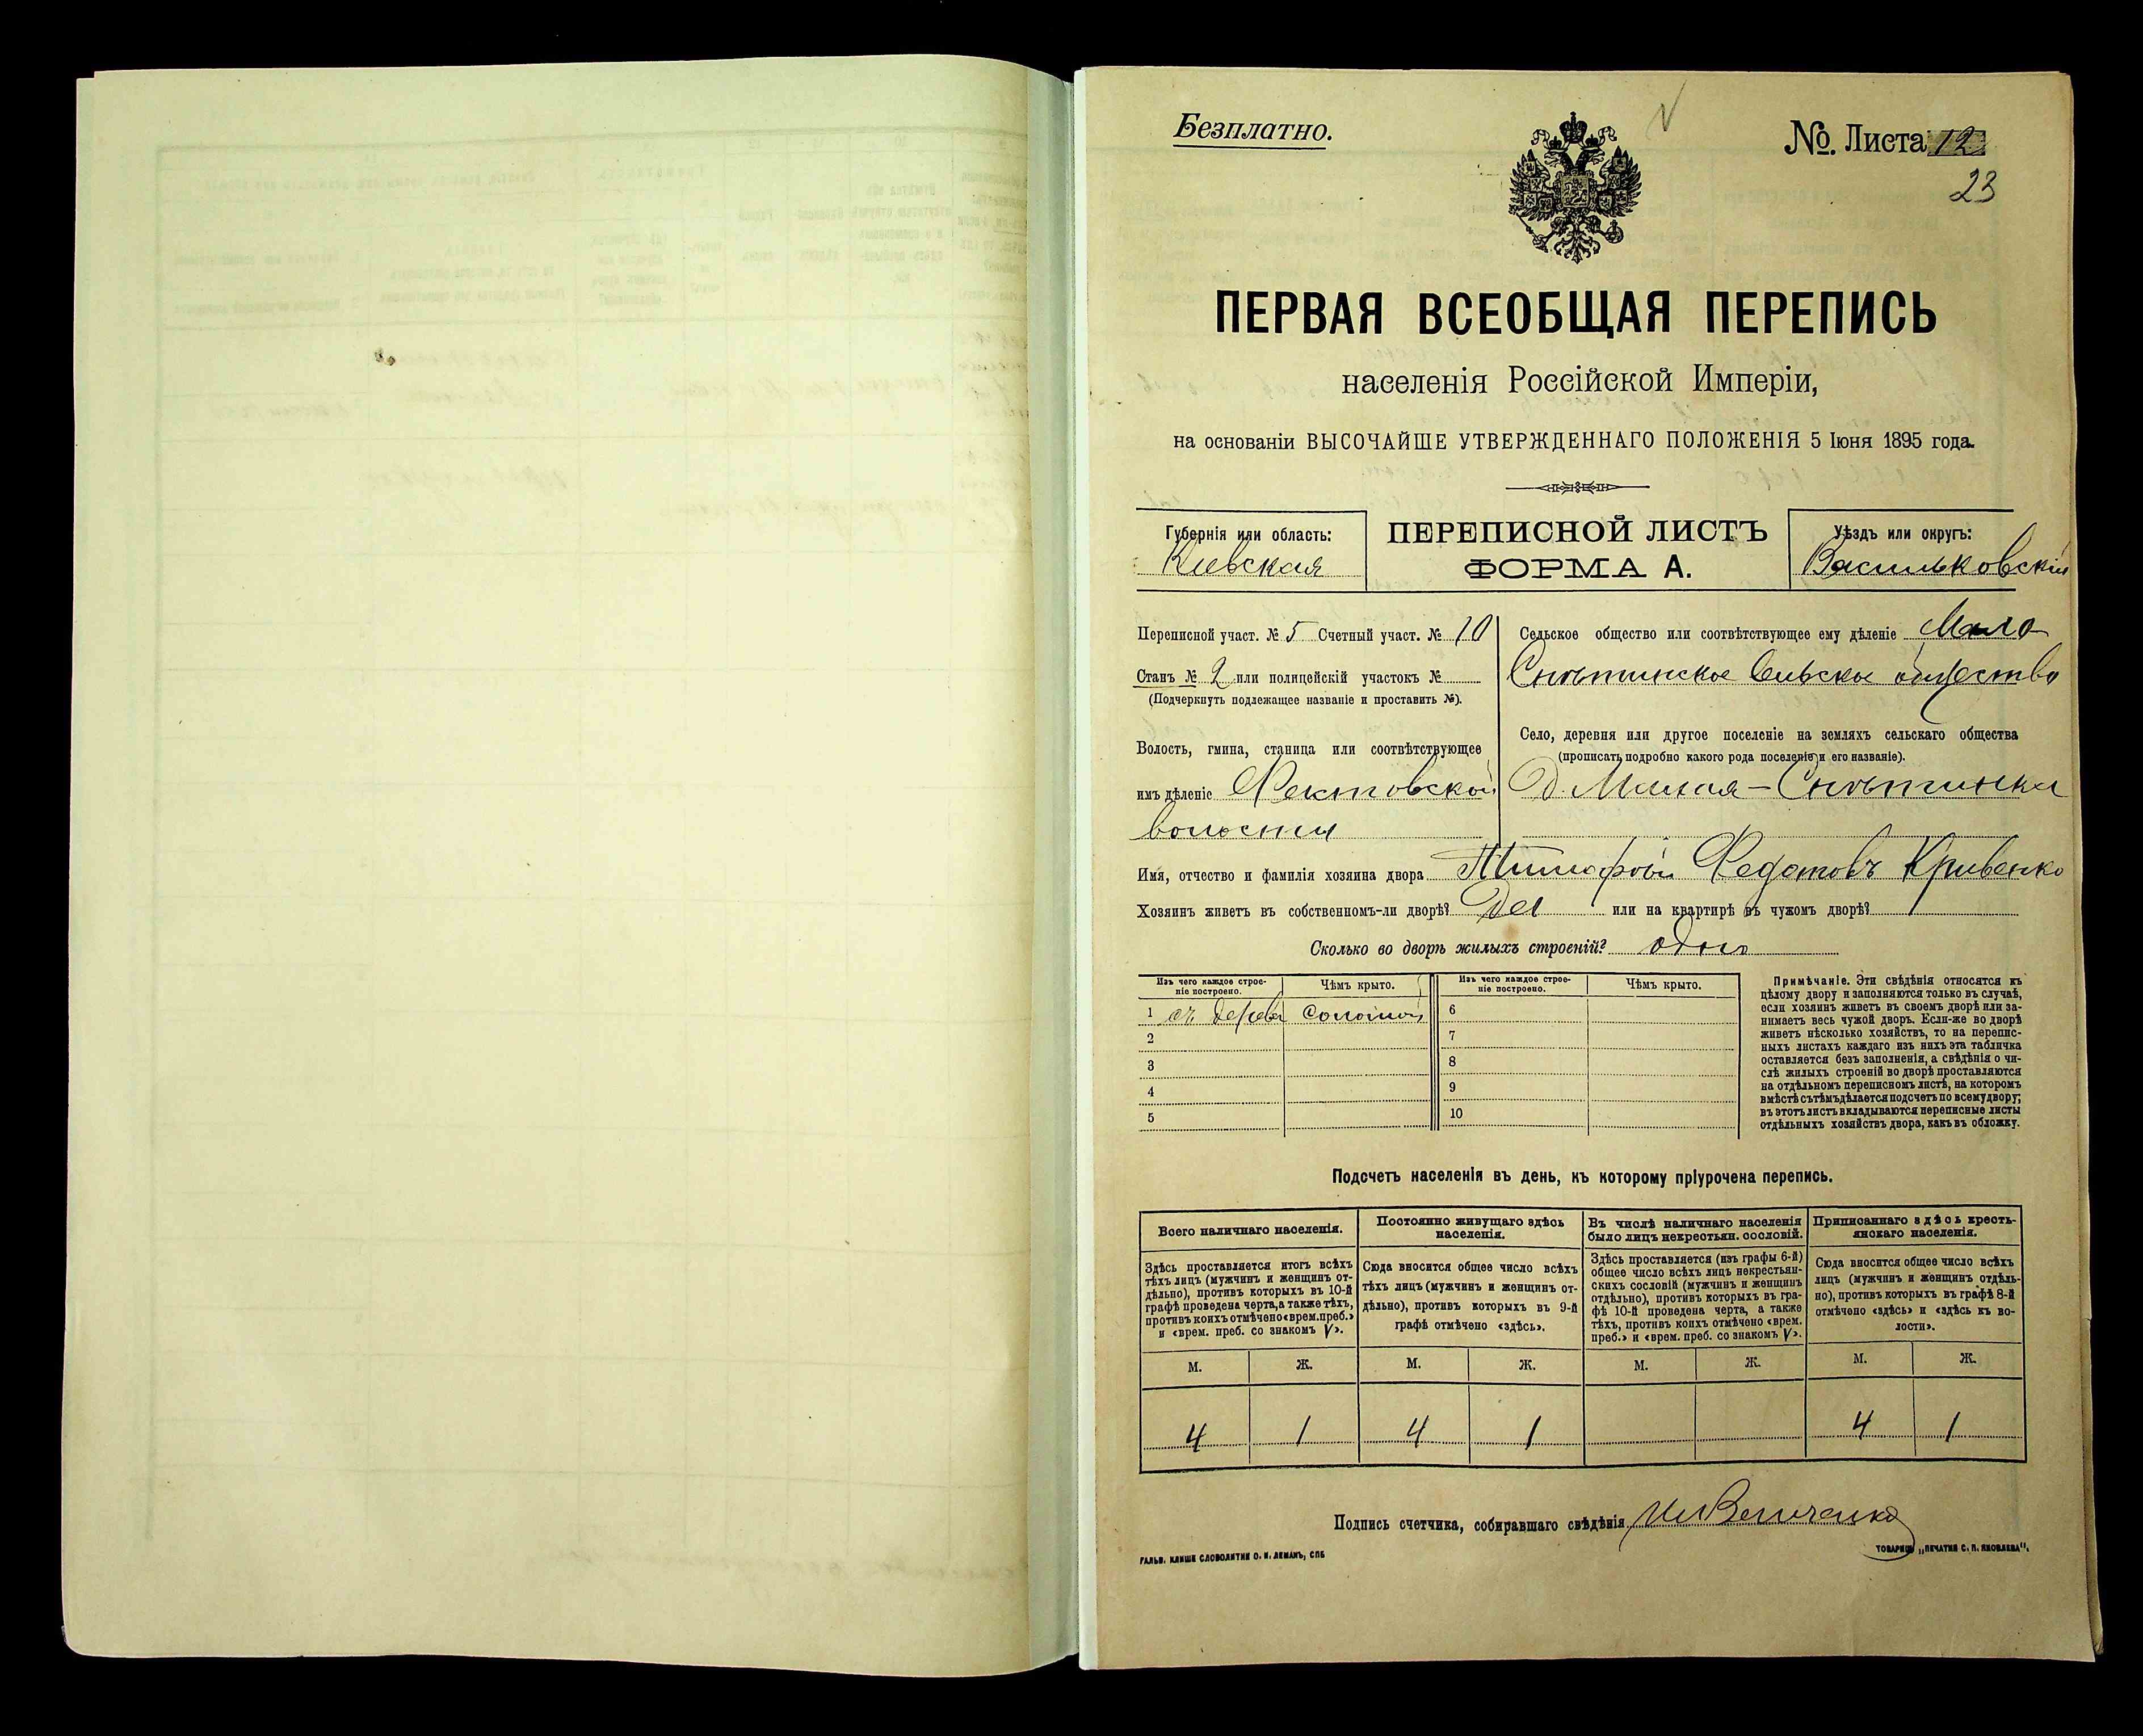 Безплатно.
№. Листа 12
23
ПЕРВАЯ ВСЕОБЩАЯ ПЕРЕПИСЬ
населенія Россійской Имперіи,
на основаніи ВЫСОЧАЙШЕ УТВЕРЖДЕННАГО ПОЛОЖЕНІЯ 5 Іюня 1895 года.
Губернія или область:
Кіевская
ПЕРЕПИСНОЙ ЛИСТЪ
ФОРМА А.
Уѣздъ или округъ:
Васильковскій
Переписной участ. № 5 Счетный участ. № 10
Станъ № 2 или полицейскій участокъ №
(Подчеркнуть подлежащее названіе и проставить №).
Волость, гмина, станица или соотвѣтствующее
имъ дѣленіе
волости
Сельское общество или соотвѣтствующее ему дѣленіе Мало
Снѣтинское Сельское общество
Село, деревня или другое поселеніе на земляхъ сельскаго общества
(прописать подробно какого рода поселеніе и его названіе).
Д. Малая-Снѣтинка
Имя, отчество и фамилія хозяина двора Тимофѣй Федотовъ Кривенко
Хозяинъ живетъ въ собственномъ-ли дворѣ? Да или на квартирѣ въ чужомъ дворѣ?
Сколько во дворѣ жилыхъ строеній? одно
Изъ чего каждое строе-
ніе построено.
Чѣмъ крыто.
Изъ чего каждое строе-
ніе построено.
Чѣмъ крыто.
1 съ дерева Соломой 6
2 7
3 8
4 9
5 10
Примѣчаніе. Эти свѣдѣнія относятся къ
цѣлому двору и заполняются только въ случаѣ,
если хозяинъ живетъ въ своемъ дворѣ или за-
нимаетъ весь чужой дворъ. Если-же во дворѣ
живетъ нѣсколько хозяйствъ, то на перепис-
ныхъ листахъ каждаго изъ нихъ эта табличка
оставляется безъ заполненія, а свѣдѣнія о чи-
слѣ жилыхъ строеній во дворѣ проставляются
на отдѣльномъ переписномъ листѣ, на которомъ
вмѣстѣ съ тѣмъ дѣлается подсчетъ по всему двору;
въ этотъ листъ вкладываются переписные листы
отдѣльныхъ хозяйствъ двора, какъ въ обложку.
Подсчетъ населенія въ день, къ которому пріурочена перепись.
Всего наличнаго населенія.
Здѣсь проставляется итогъ всѣхъ
тѣхъ лицъ (мужчинъ и женщинъ от-
дѣльно), противъ которыхъ въ 10-й
графѣ проведена черта, а также тѣхъ,
противъ коихъ отмѣчено «врем. преб.»
и «врем. преб. со знакомъ V».
Постоянно живущаго здѣсь
населенія.
Сюда вносится общее число всѣхъ
тѣхъ лицъ (мужчинъ и женщинъ от-
дѣльно), противъ которыхъ въ 9-й
графѣ отмѣчено «здѣсь».
Въ числѣ наличнаго населенія
было лицъ некрестьян. сословій.
Здѣсь проставляется (изъ графы 6-й)
общее число всѣхъ лицъ некрестьян-
скихъ сословій (мужчинъ и женщинъ
отдѣльно), противъ которыхъ въ гра-
фѣ 10-й проведена черта, а также
тѣхъ, противъ коихъ отмѣчено «врем.
преб.» и «врем. преб. со знакомъ V».
Приписаннаго здѣсь кресть-
янскаго населенія.
Сюда вносится общее число всѣхъ
лицъ (мужчинъ и женщинъ отдѣль-
но), противъ которыхъ въ графѣ 8-й
отмѣчено «здѣсь» и «здѣсь къ во-
лости».
М. Ж. М. Ж. М. Ж. М. Ж.
4 1 4 1 4 1
Подпись счетчика, собиравшаго свѣдѣнія
ГАЛЬВ. КЛИШЕ СЛОВОЛИТНИ О. И. ЛЕМАНЪ, СПБ
ТОВАРИЩ. „ПЕЧАТНЯ С. П. ЯКОВЛЕВА".